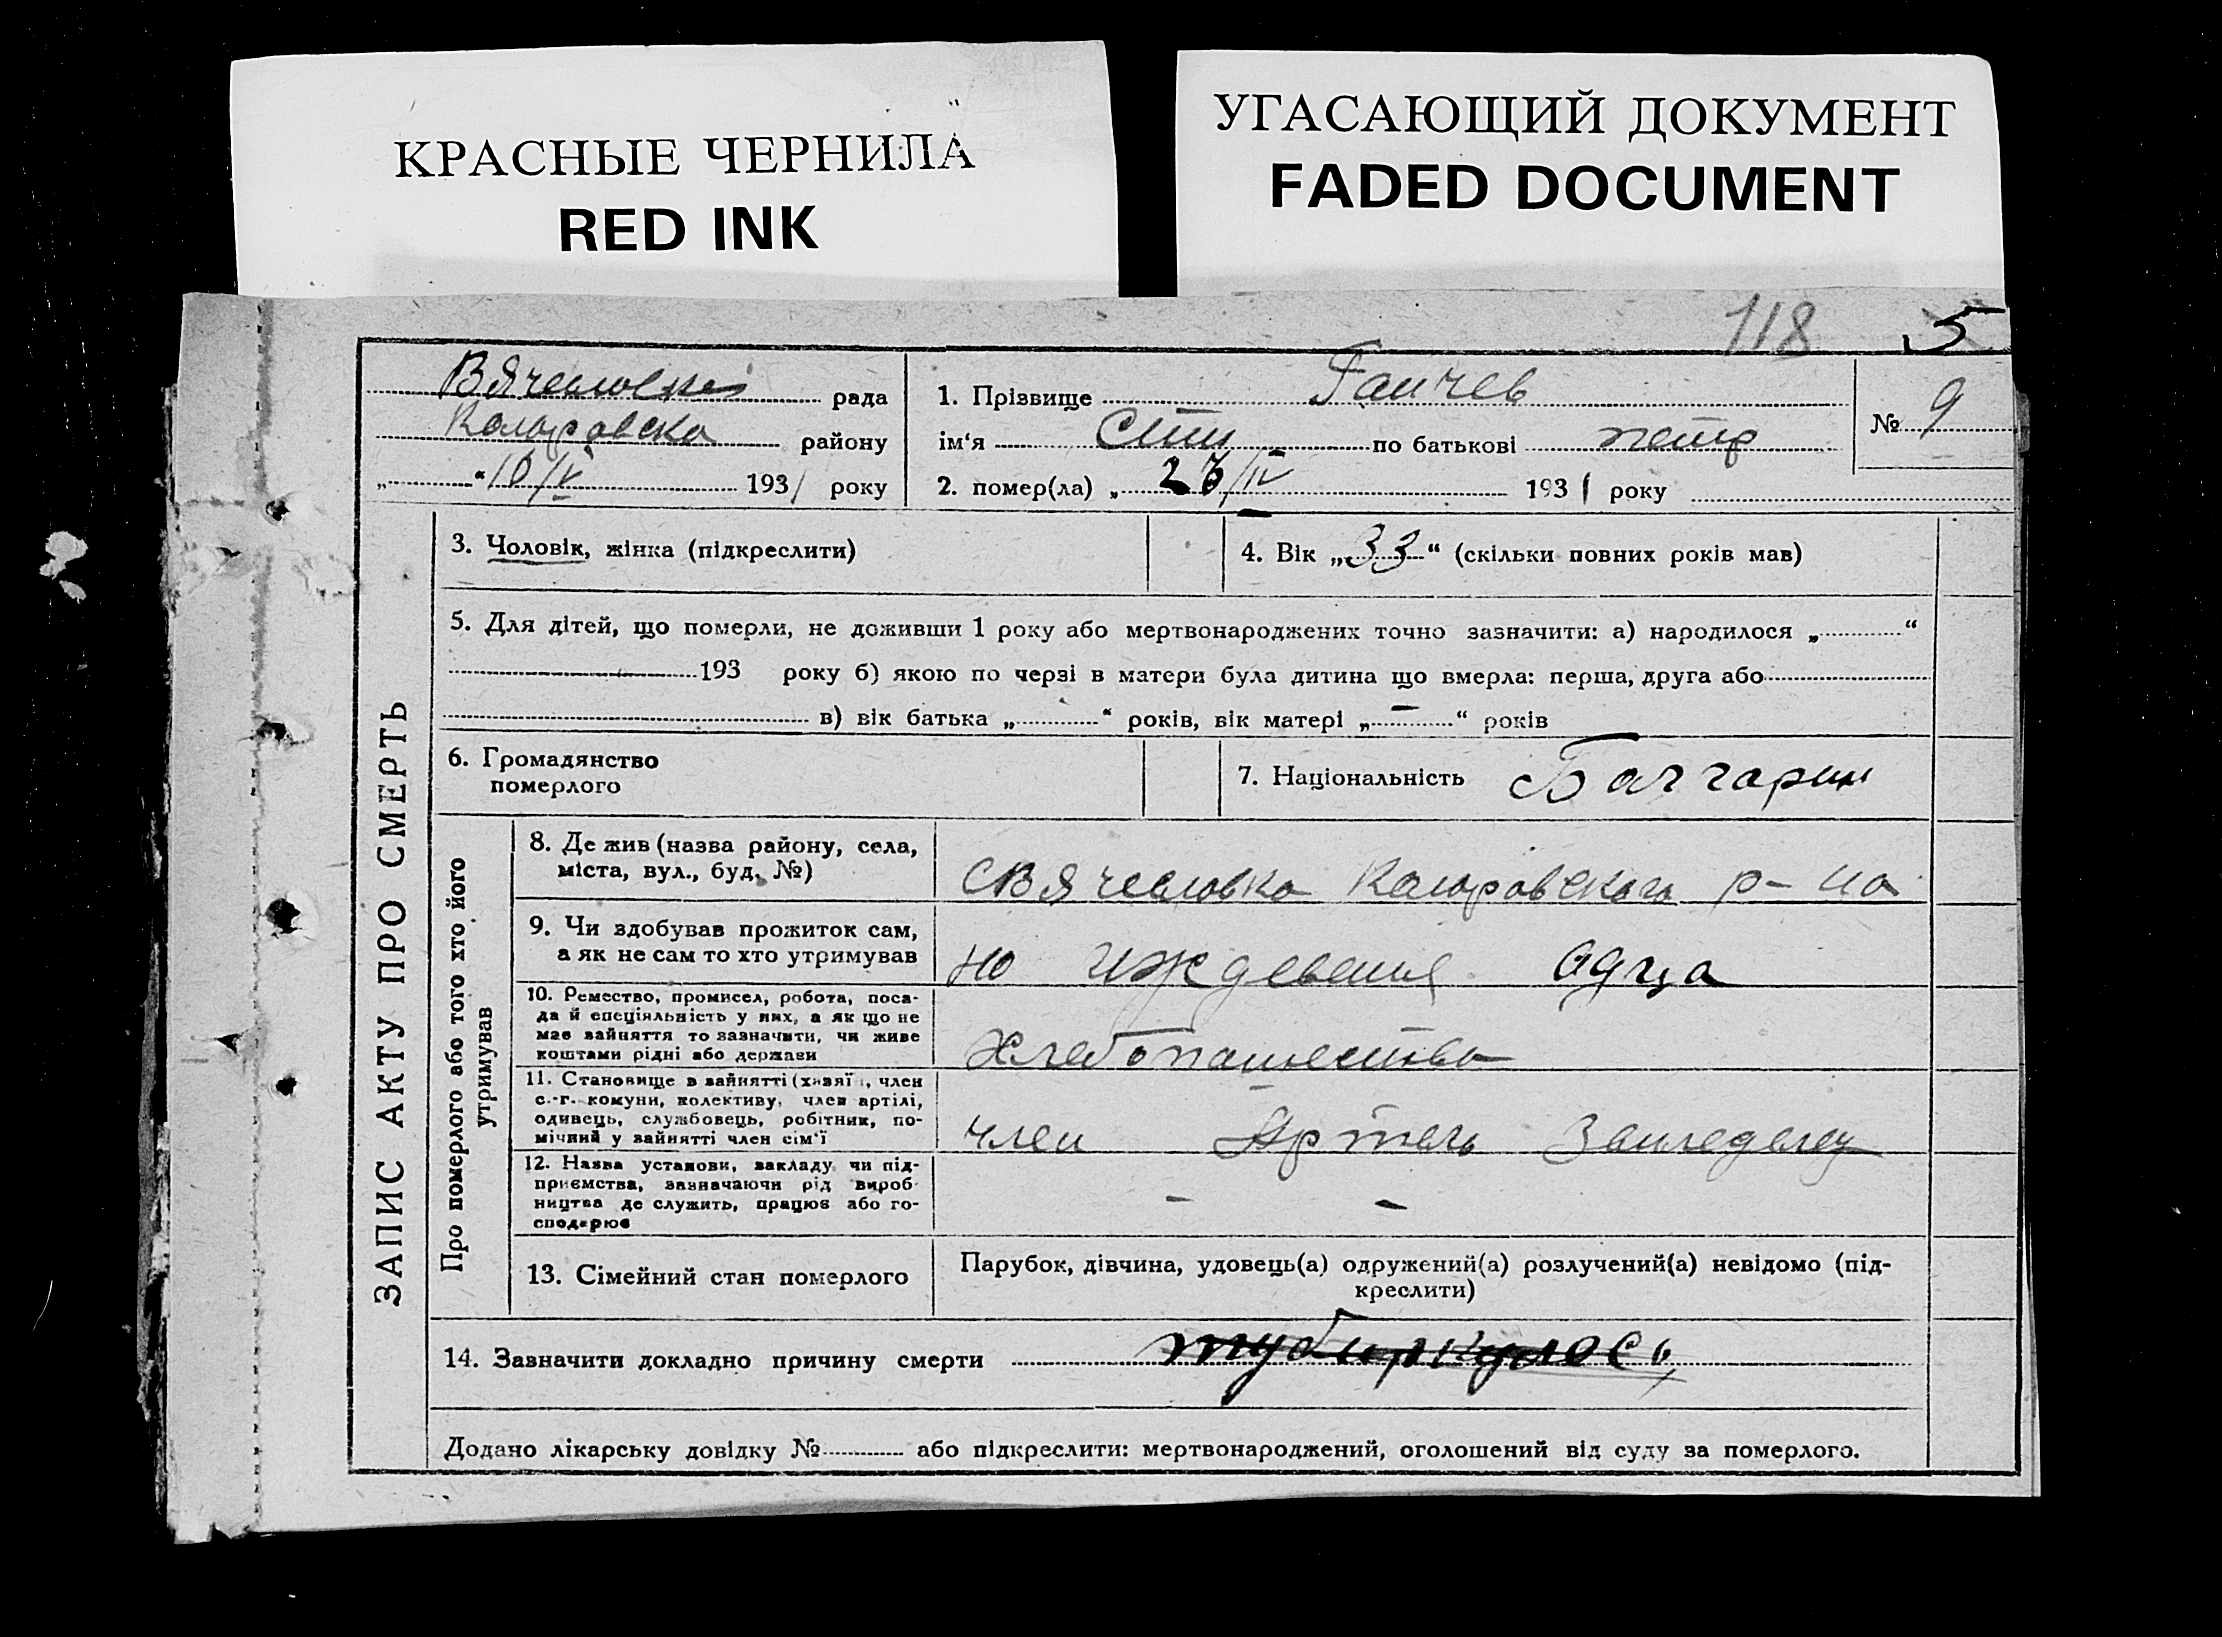 КРАСНЫЕ ЧЕРНИЛА
RED INK
УГАСАЮЩИЙ ДОКУМЕНТ
FADED DOCUMENT
118 5
рада
району
„ “ 10/V 1931 року
1. Прізвище Ганчев
ім‘я по батькові петр
№ 9
2. помер(ла) „ 23/IV 1931 року
ЗАПИС АКТУ ПРО СМЕРТЬ
3. Чоловік, жінка (підкреслити)
4. Вік „33“ (скільки повних років мав)
5. Для дітей, що померли, не доживши 1 року або мертвонароджених точно зазначити: а) народилося „ “
193 року б) якою по черзі в матери була дитина що вмерла: перша, друга або
в) вік батька „ “ років, вік матері „ – “ років
6. Громадянство
померлого
7. Національність Балгарин
Про померлого або того хто його
утримував
8. Де жив (назва району, села,
міста, вул., буд. №)
СВячеславка Коларовского р-на
9. Чи здобував прожиток сам,
а як не сам то хто утримував
на иждевения адца
10. Ремество, промисел, робота, поса-
да й спеціяльність у них, а як що не
має зайняття то зазначити, чи живе
коштами рідні або держави
Хлебопашество
11. Становище в зайнятті (хазяї , член
с.-г. комуни, колективу, член артілі,
одивець, службовець, робітник, по-
мічний у зайнятті член сім‘ї
член Артель Земледелец
12. Назва установи, закладу чи під-
приємства, зазначаючи рід вироб-
ництва де служить, працює або го-
сподарює
– –
13. Сімейний стан померлого
Парубок, дівчина, удовець(а) одружений(а) розлучений(а) невідомо (під-
креслити)
14. Зазначити докладно причину смерти
Додано лікарську довідку № або підкреслити: мертвонароджений, оголошений від суду за померлого.